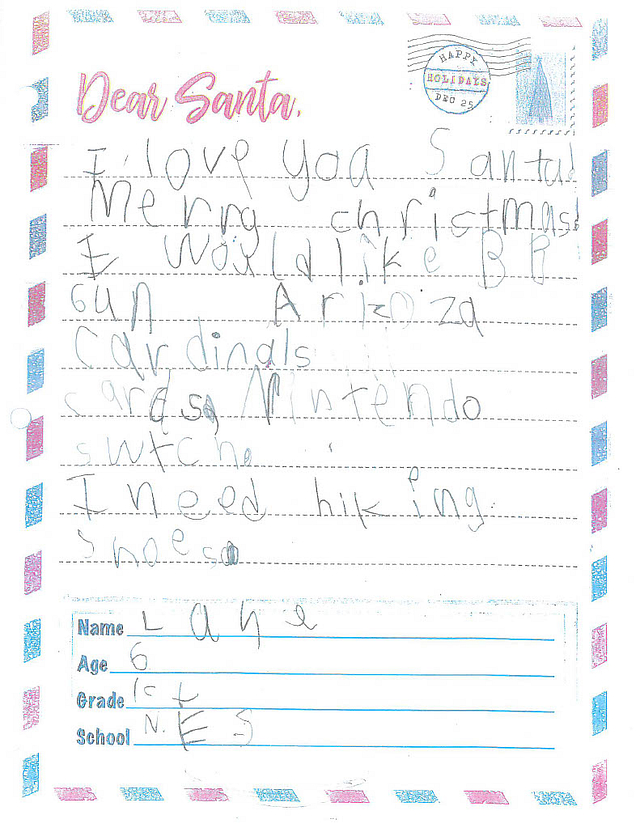 HAPPY
HOLIDAYS
DEC 25
Dear Santa,
I love you Santa!
Merry christmas
I would like BB
Gun Arizoza
Cardinals
cards, Nintendo
swtch.
I need hiking
shoes.
Name Lane
Age 6
Grade 1st
School N.E.S